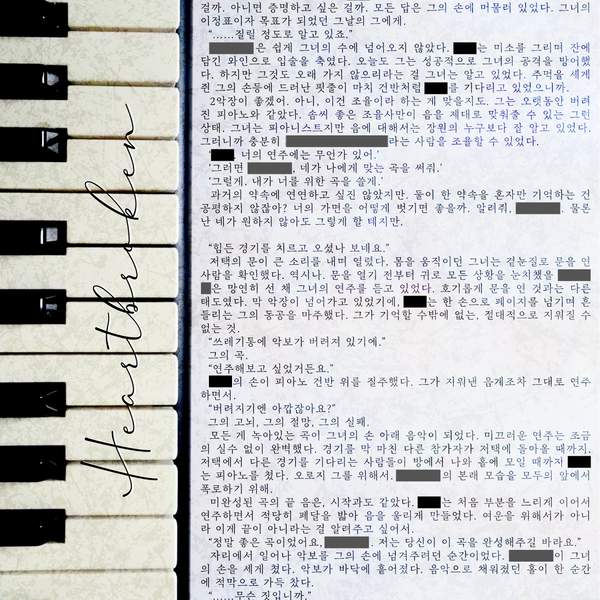 Heartbroken
걸까. 아니면 증명하고 싶은 걸까. 모든 답은 그의 손에 머물러 있었다. 그녀의
이정표이자 목표가 되었던 그날의 그에게.
"……질릴 정도로 알고 있죠."
은 쉽게 그녀의 수에 넘어오지 않았다. 는 미소를 그리며 잔에
담긴 와인으로 입술을 축였다. 오늘도 그는 성공적으로 그녀의 공격을 방어했
다. 하지만 그것도 오래 가지 않으리라는 걸 그녀는 알고 있었다. 주먹을 세게
쥔 그의 손등에 드러난 핏줄이 마치 건반처럼 를 기다리고 있었으니까.
2악장이 좋겠어. 아니, 이건 조율이라 하는 게 맞을지도. 그는 오랫동안 버려
진 피아노와 같았다. 솜씨 좋은 조율사만이 음을 제대로 맞춰줄 수 있는 그런
상태. 그녀는 피아니스트지만 음에 대해서는 장원의 누구보다 잘 알고 있었다.
그러니까 충분히 라는 사람을 조율할 수 있었다.
' , 너의 연주에는 무언가 있어.'
'그러면 , 네가 나에게 맞는 곡을 써줘.'
'그럴게. 내가 너를 위한 곡을 쓸게.'
과거의 약속에 연연하고 싶진 않았지만. 둘이 한 약속을 혼자만 기억하는 건
공평하지 않잖아? 너의 가면을 어떻게 벗기면 좋을까. 알려줘, . 물론
난 네가 원하지 않아도 그렇게 할 테지만.
"힘든 경기를 치르고 오셨나 보네요."
저택의 문이 큰 소리를 내며 열렸다. 몸을 움직이던 그녀는 곁눈질로 문을 연
사람을 확인했다. 역시나. 문을 열기 전부터 귀로 모든 상황을 눈치챘을
은 망연히 선 채 그녀의 연주를 듣고 있었다. 호기롭게 문을 연 것과는 다른
태도였다. 막 악장이 넘어가고 있었기에, 는 한 손으로 페이지를 넘기며 흔
들리는 그의 동공을 마주했다. 그가 기억할 수밖에 없는, 절대적으로 지워질 수
없는 것.
"쓰레기통에 악보가 버려져 있기에."
그의 곡.
"연주해보고 싶었거든요."
의 손이 피아노 건반 위를 질주했다. 그가 지워낸 음계조차 그대로 연주
하면서.
"버려지기엔 아깝잖아요?"
그의 고뇌, 그의 절망, 그의 실패.
모든 게 녹아있는 곡이 그녀의 손 아래 음악이 되었다. 미끄러운 연주는 조금
의 실수 없이 완벽했다. 경기를 막 마친 다른 참가자가 저택에 돌아올 때까지.
저택에서 다른 경기를 기다리는 사람들이 방에서 나와 홀에 모일 때까지
는 피아노를 쳤다. 오로지 그를 위해서. 의 본래 모습을 모두의 앞에서
폭로하기 위해.
미완성된 곡의 끝 음은, 시작과도 같았다. 는 처음 부분을 느리게 이어서
연주하면서 적당히 페달을 밟아 음을 울리게 만들었다. 여운을 위해서가 아니
라 이게 끝이 아니라는 걸 알려주고 싶어서.
"정말 좋은 곡이었어요, . 저는 당신이 이 곡을 완성해주길 바라요."
자리에서 일어나 악보를 그의 손에 넘겨주려던 순간이었다. 이 그녀
의 손을 세게 쳤다. 악보가 바닥에 흩어졌다. 음악으로 채워졌던 홀이 한 순간
에 적막으로 가득 찼다.
"……무슨 짓입니까."